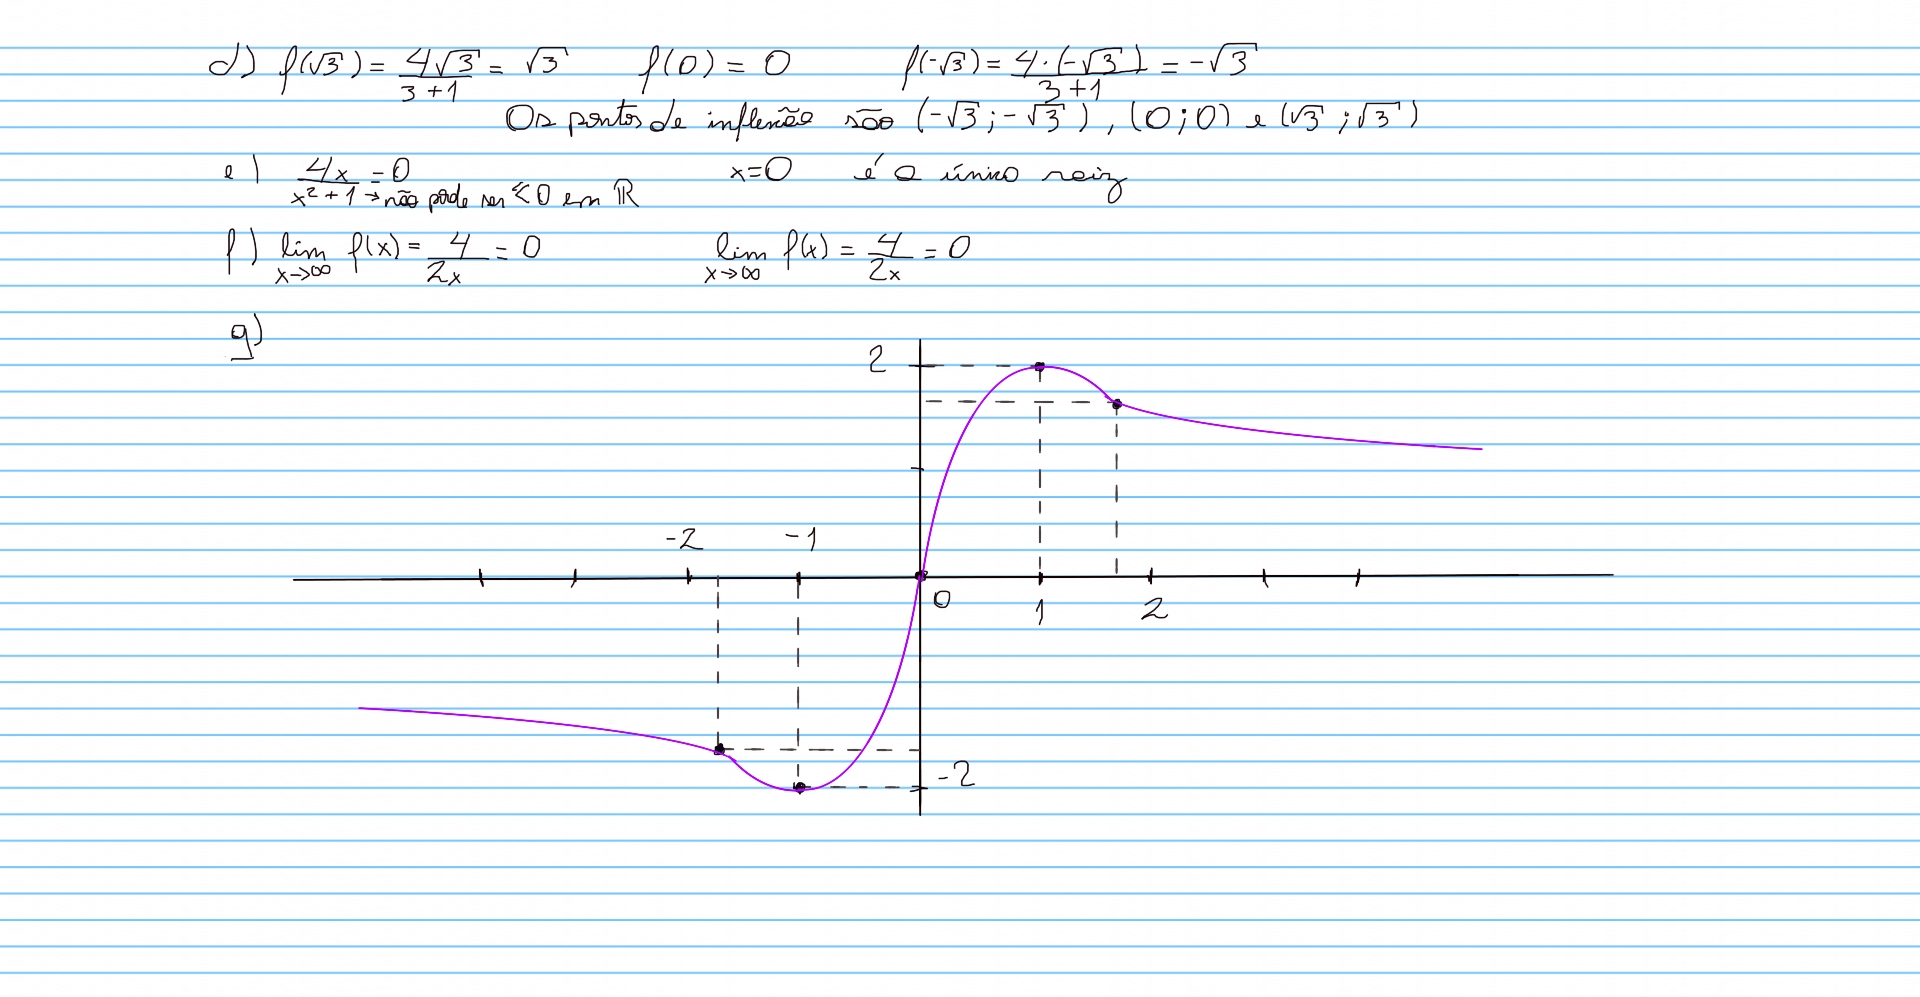 d) f(√3) = 4√3/3+1 = √3 f(0) = 0 f(-√3) = 4·(-√3)/3+1 = -√3
Os pontos de inflexão são (-√3 ; -√3), (0 ; 0) e (√3 ; √3)
e) 4x/x²+1 = 0 → não pode ser ≤ 0 em ℝ x=0 é a único raiz
f) lim x→∞ f(x) = 4/2x = 0 lim x→∞ f(x) = 4/2x = 0
g)
2
-2 -1
0 1 2
-2